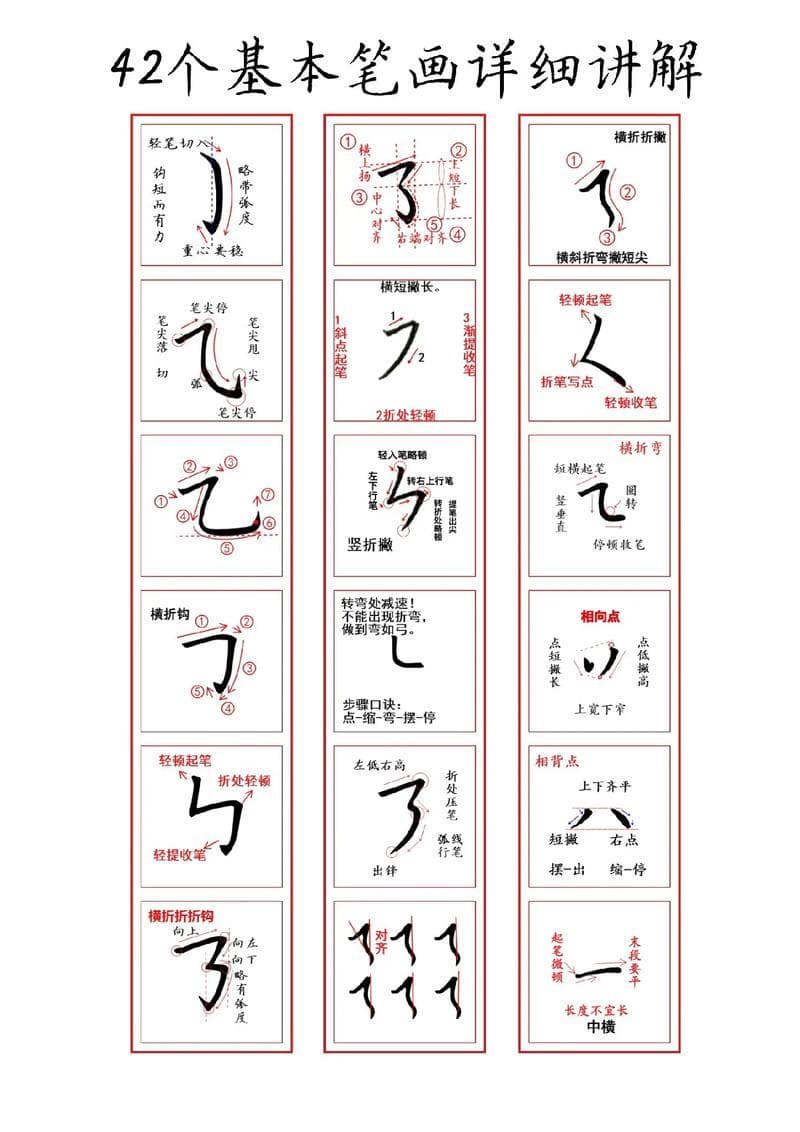 42个基本笔画详细讲解
轻笔切入
钩短而有力
略带弧度
重心要稳
笔尖停
笔尖落
笔尖甩
切
弧
尖
笔尖停
①
②
③
④
⑤
⑥
⑦
横折钩
①
②
③
④
⑤
轻顿起笔
折处轻顿
轻提收笔
横折折折钩
向上
向左
向下
略有弧度
①
横上扬
②
上短下长
③
中心对齐
右端对齐
④
⑤
横短撇长。
1斜点起笔
1
2
3渐提收笔
2折处轻顿
轻入笔略顿
左下行笔
转右上行笔
转折处略顿
提笔出尖
竖折撇
转弯处减速！
不能出现折弯，
做到弯如弓。
步骤口诀：
点-缩-弯-摆-停
左低右高
折处压笔
弧线行笔
出锋
对齐
横折折撇
①
②
③
横斜折弯撇短尖
轻顿起笔
折笔写点
轻顿收笔
横折弯
短横起笔
竖垂直
圆转
停顿收笔
相向点
点短撇长
点低撇高
上宽下窄
相背点
上下齐平
短撇 右点
摆-出 缩-停
起笔微顿
末段要平
长度不宜长
中横